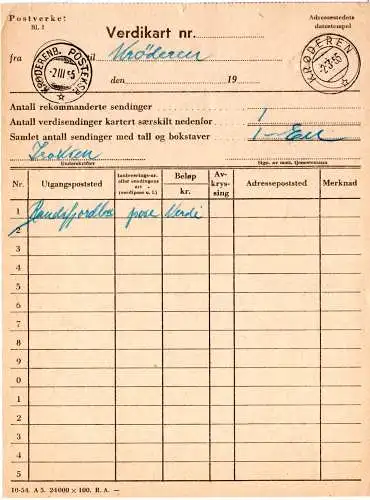 Postverket
Bl. 1
Verdikart nr.
Adressestedets
datostempel
fra
til Krøderen
den 19
KRØDERENB. POSTEKSP.
-2 III 55
KRØDEREN
-2.3.55
Antall rekommanderte sendinger
Antall verdisendinger kartert særskilt nedenfor 1
Samlet antall sendinger med tall og bokstaver 1 - En
Underskrifter
Sign. av mott. tjenestemann
Nr. Utgangspoststed Innleverings-nr. eller sendingens art (verdipose o. l.) Beløp kr. Av-kryssing Adressepoststed Merknad
1 Randsfjordbn pose Verdi
2
3
4
5
6
7
8
9
0
1
2
3
4
5
10-54. A 5. 24000 × 100. R. A. —